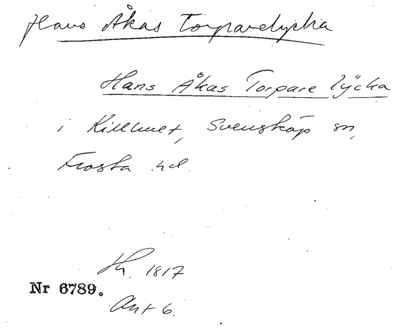 Hans Åkas Torparelycka
Hans Åkas Torpare lÿcka
i Killhuset, Svensköp sn,
Frosta hd.
Hh. 1817
Nr 6789.
Akt 6.